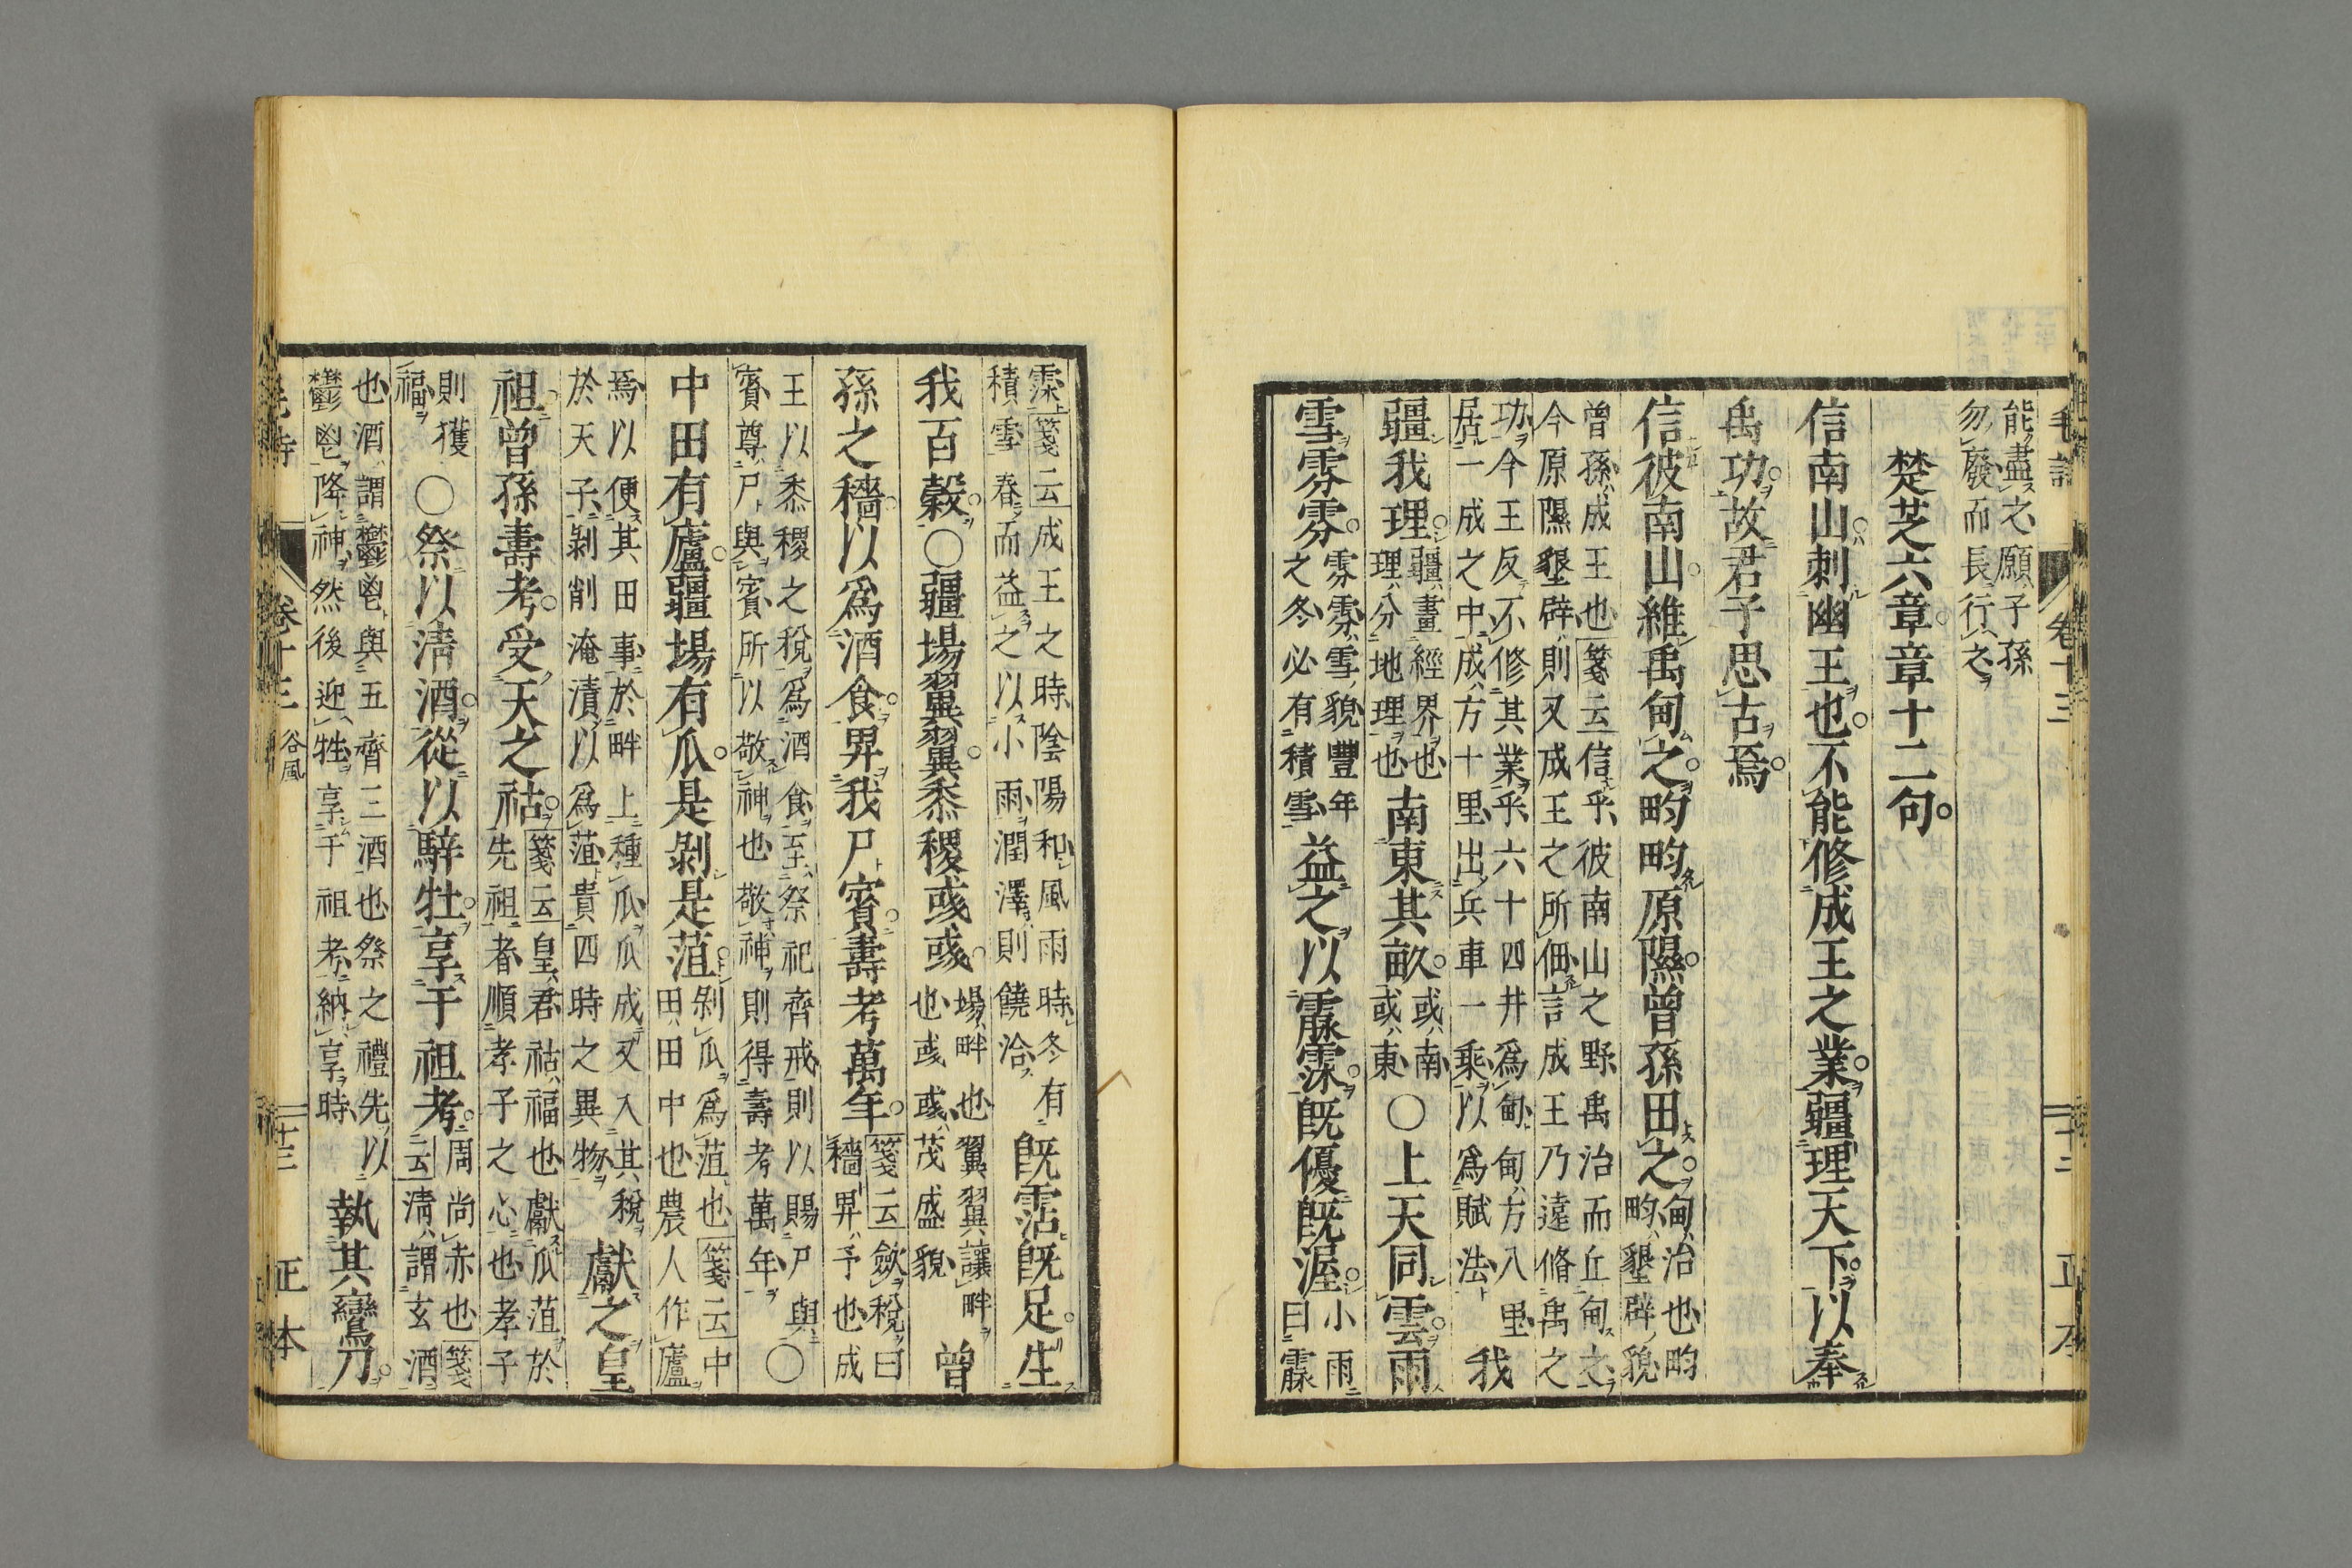 毛詩 卷十三 二十二 正本
能盡之願子孫
勿廢而長行之
楚茨六章章十二句
信南山刺幽王也不能修成王之業疆理天下以奉
禹功故君子思古焉
信彼南山維禹甸之畇畇原隰曾孫田之
甸治也畇
畇墾辟貌
曾孫成王也箋云信乎彼南山之野禹治而丘甸之
今原隰墾辟則又成王之所佃言成王乃遠脩禹之
功今王反不修其業乎六十四井爲甸甸方八里
居一成之中成方十里出兵車一乘以爲賦法
我
疆我理
疆畫經界也
理分地理也
南東其畝
或南
或東
○上天同雲雨
雪雰雰
雰雰雪貌豐年
之冬必有積雪
益之以霢霂既優既渥
小雨
曰霢
霂箋云成王之時陰陽和風雨時冬有
積雪春而益之以小雨潤澤則饒洽
既霑既足生
我百穀○疆場翼翼黍稷彧彧
場畔也翼翼讓畔
也彧彧茂盛貌
曾
孫之穡以爲酒食畀我尸賓壽考萬年
箋云斂稅曰
穡畀予也成
王以黍稷之稅爲酒食至祭祀齊戒則以賜尸與
賓尊尸與賓所以敬神也敬神則得壽考萬年
○
中田有廬疆場有瓜是剝是菹
剝瓜爲菹也箋云中
田田中也農人作廬
焉以便其田事於畔上種瓜瓜成又入其稅
於天子剝削淹漬以爲菹貴四時之異物
獻之皇
祖曾孫壽考受天之祜
箋云皇君祜福也獻瓜菹於
先祖者順孝子之心也孝子
則獲
福
○祭以清酒從以騂牡享于祖考
周尚赤也箋
云清謂玄酒
也酒謂鬱鬯與五齊三酒也祭之禮先以
鬱鬯降神然後迎牲享于祖考納享時
執其鸞刀
毛詩 卷十三 谷風 二十三 正本